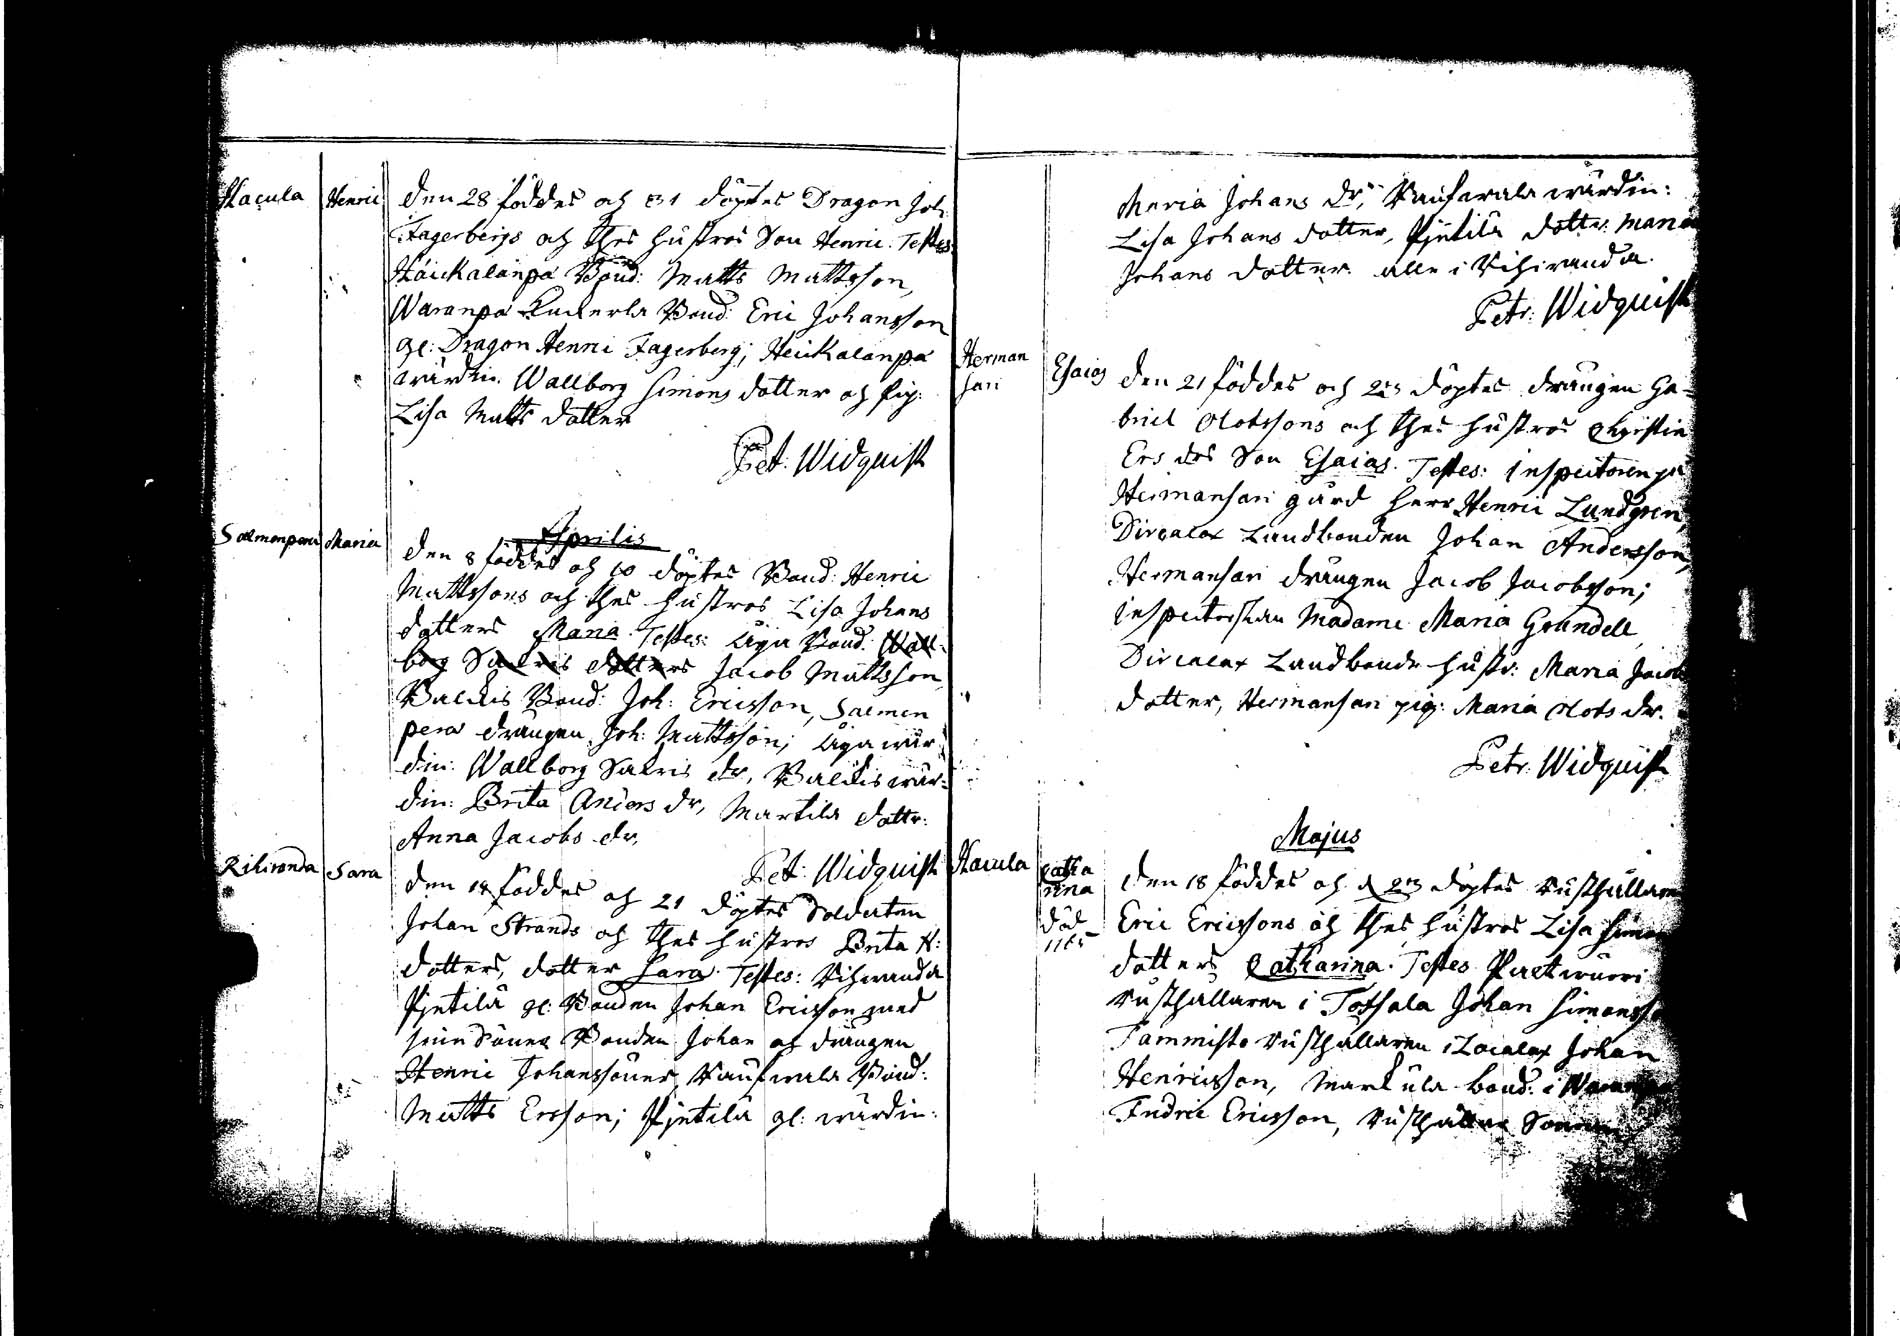 Hacula
Henric
den 28 föddes och 31 döptes Dragon Joh:
Fagerbergs och thes hustros Son Henric. Testes:
Haukalanpä Bond: Matts Mattsson,
Waranpä Bond: Eric Johansson
gl: Dragon Henric Fagerberg; Heickalanpä
wärdin: Wallborg Simons dotter och pig:
Lisa Matts dotter
Pet: Widquist
Aprilis
Salmenperä
Maria
den 8 föddes och 10 döptes Bond: Henric
Mattssons och thes hustros Lisa Johans
dotters Maria. Testes: Äijä Bond: Wall-
borg Sakris dotters Jacob Mattsson,
Bond: Joh: Ericsson, Salmen
perä drängen Joh: Mattsson; Äijä wär-
din: Wallborg Sakris dr, wär-
din: Brita Anders dr, Martila dottr:
Anna Jacobs dr,
Pet: Widquist
Rihiranda
Sara
den 18 föddes och 21 döptes Soldaten
Johan Strands och thes hustros Brita H:
dotters, dotter Sara. Testes: Rihiranda
Pjntilä gl: Bonden Johan Ericsson med
sine Söner Bonden Johan och drängen
Henric Johanssöner, Bond:
Matts Ersson; Pjntilä gl: wärdin:
Maria Johans dr, wärdin:
Lisa Johans dotter, Pjntilä dotter Maria
Johans dotter. alle i Rihiranda.
Petr: Widquist
Herman
sari
Esaias
den 21 föddes och 23 döptes drängen Ga-
briel Olofssons och thes hustros Christin
Ers drs Son Esaias. Testes: inspectoren på
Hermansari gård Herr Henric Lundgren,
Dircalax Landbonden Johan Andersson,
Hermansari drängen Jacob Jacobsson;
inspectorskan Madame Maria Grundell,
Dircalax Landbonde hustr: Maria Jacobs
dotter, Hermansari pig: Maria Olofs dr.
Petr: Widquist
Majus
Hacula
Catha
rina
död
1765
den 18 föddes och 23 döptes Rusthållaren
Eric Ericssons och thes hustros Lisa Simons
dotters Catharina. Testes
Rusthållaren i Totsala Johan Simonsson
Tammisto Rusthållaren i Localax Johan
Henricsson, Markula bond: i
Fredric Ericsson, Rusthållar Sonen